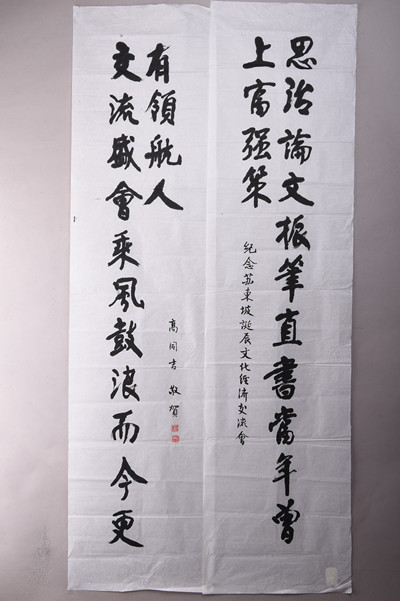 思治論文振筆直書當年曾
上富强策
紀念苏東坡誕辰文化經濟交流會
交流盛會乘風鼓浪而今更
有領航人
高同 敬賀